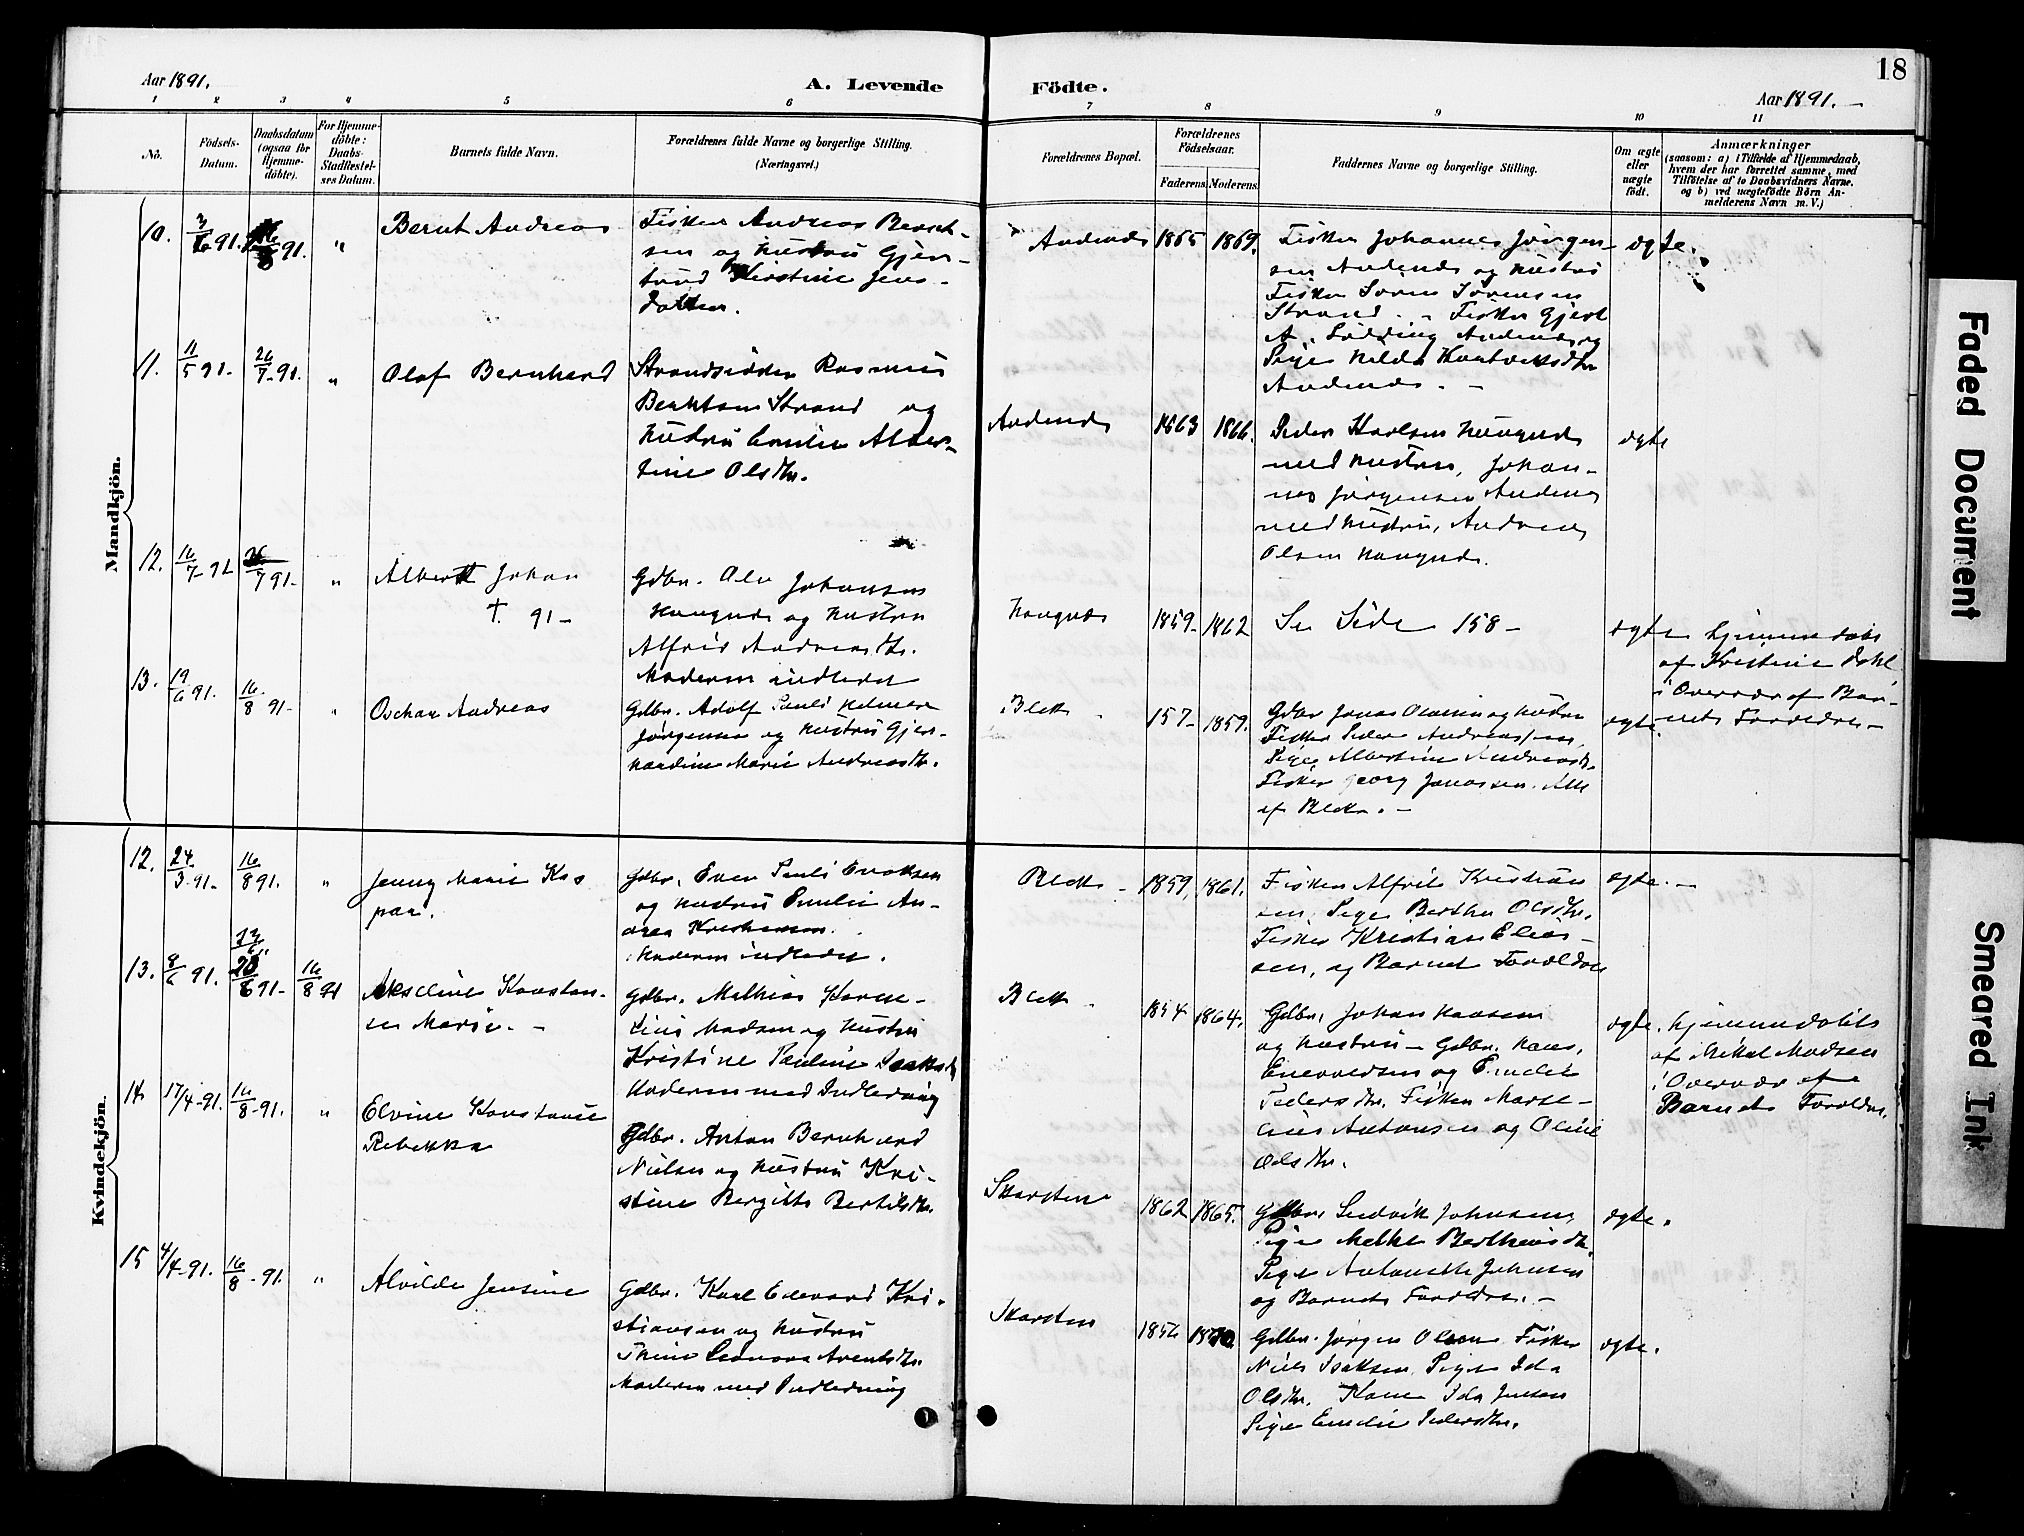 18
Aar 1891.
A. Levende
Födte.
Aar 1891.
1 2 3 4 5 6 7 8 9 10 11
No.
Födsels-
Datum.
Daabsdatum
(ogsaa for
Hjemme-
döbte).
For Hjemme-
döbte:
Daabs-
Stadfæstel-
ses Datum.
Barnets fulde Navn.
Forældrenes fulde Navne og borgerlige Stilling.
(Næringsvei.)
Forældrenes Bopæl.
Forældrenes
Födselsaar.
Faderens. Moderens.
Faddernes Navne og borgerlige Stilling.
Om ægte
eller
uægte
født.
Anmærkninger
(saasom: a) i Tilfælde af Hjemmedaab,
hvem der har forrettet samme, med
Tilföielse af to Daabsvidners Navne,
og b) ved uægtefödte Börn An-
melderens Navn m. V.)
Mandkjön.
10. 3/6 91. 91. "
Bernt Andreas
Fisker Andreas Bernt-
sen og Hustru Gjer-
trud Kirstine Jens-
datter.
Andenæs 1865 1869.
Fisker Johannes Jörgen-
sen Andenæs og Hustru
Fisker Sören Sörensen
Strand. Fisker Gjert
A. Andenæs og
Pige Hilda
Andenæs. -
ægte.
11. 11/5 91- 26/7-91. "
Olaf Bernhard
Strandsidder Rasmus
Strand og
Hustru Emilie Alber-
tine Olsdtr.
Andenæs 1863 1866.
Peder Karlsen Haugnæs
med Hustru, Johan-
nes Jörgensen Andenes
med Hustru, Andreas
Olsen Haugnæs.
ægte
12. 16/7-91 26/7 91- "
Albert Johan
† 91-
Gdbr. Ole Johansen
Haugnæs og Hustru
Alfrid Andreasdtr.
Moderen indledet
Haugnæs 1859- 1862
Se Side 158-
ægte
hjemmedöbt
af Kristine Dahl
i Overvær af Bar-
nets Forældre-
13. 19/6 91. 16/8 91- "
Oschar Andreas
Gdbr. Adolf Pauli Helmer
Jörgensen og Hustru Gjer-
hardine Marie Andreasdtr.
Bleik 157- 1859.
Gdbr Jonas og Hustru
Fisker Peder Andreassen,
Pige Albertine Andreasdtr
Fisker Georg Jonassen. Alle
af Bleik. -
ægte.
Kvindekjön.
12. 24/3-91- 16/8 91. "
Jenny Marie Kas
para.
Gdbr. Even Pauli Evensen
og Hustru Emilie An-
drea Kristiansen.
Moderen indledet.
Bleik - 1859, 1861.
Fisker Alfrid Kristian
sen, Pige Berthe Olsdtr.
Fisker Kristian Elias-
sen, og Barnets Forældre
ægte. -
13. 8/6 91. 91- 16/8 91
Akseline Konstan-
se Marie. -
Gdbr. Mathias Korne-
lius Madsen og Hustru
Kristine Pauline
Moderen med Indledning
Bleik - 1854 1864.
Gdbr. Johan Hansen
og Hustru - Gdbr. Hans
og Emelie
Pedersdtr. Fisker Marse-
lius Antonsen og Oline
Olsdtr.
ægte.
hjemmedöbt
af Mikal Madsen
i Overvær af
Barnets Forældre.
14. 17/4-91. 16/8-91. "
Elvine Konstanse
Rebekka
Gdbr. Anton Bernhard
Nielsen og Hustru Kri-
stine Bergitte Bertilsdtr.
Skarsten 1862 1865.
Gdbr. Ludvik Johnsen,
Pige
Pige Antonette Johnsen
og Barnets Forældre. -
ægte.
15 4/4-91. 16/8-91. "
Alvilde Jensine
Gdbr. Karl Edevard Kri-
stiansen og Hustru
Leonora Arentsdtr.
Moderen med Indledning
Skarsten
Gdbr. Jörgen Olsen Fisker
Niels Isaksen, Pige Ida
Olsdtr. Kone Ida Jensen
Pige Emelie Pedersdtr.
ægte.
Faded Document
Smeared Ink